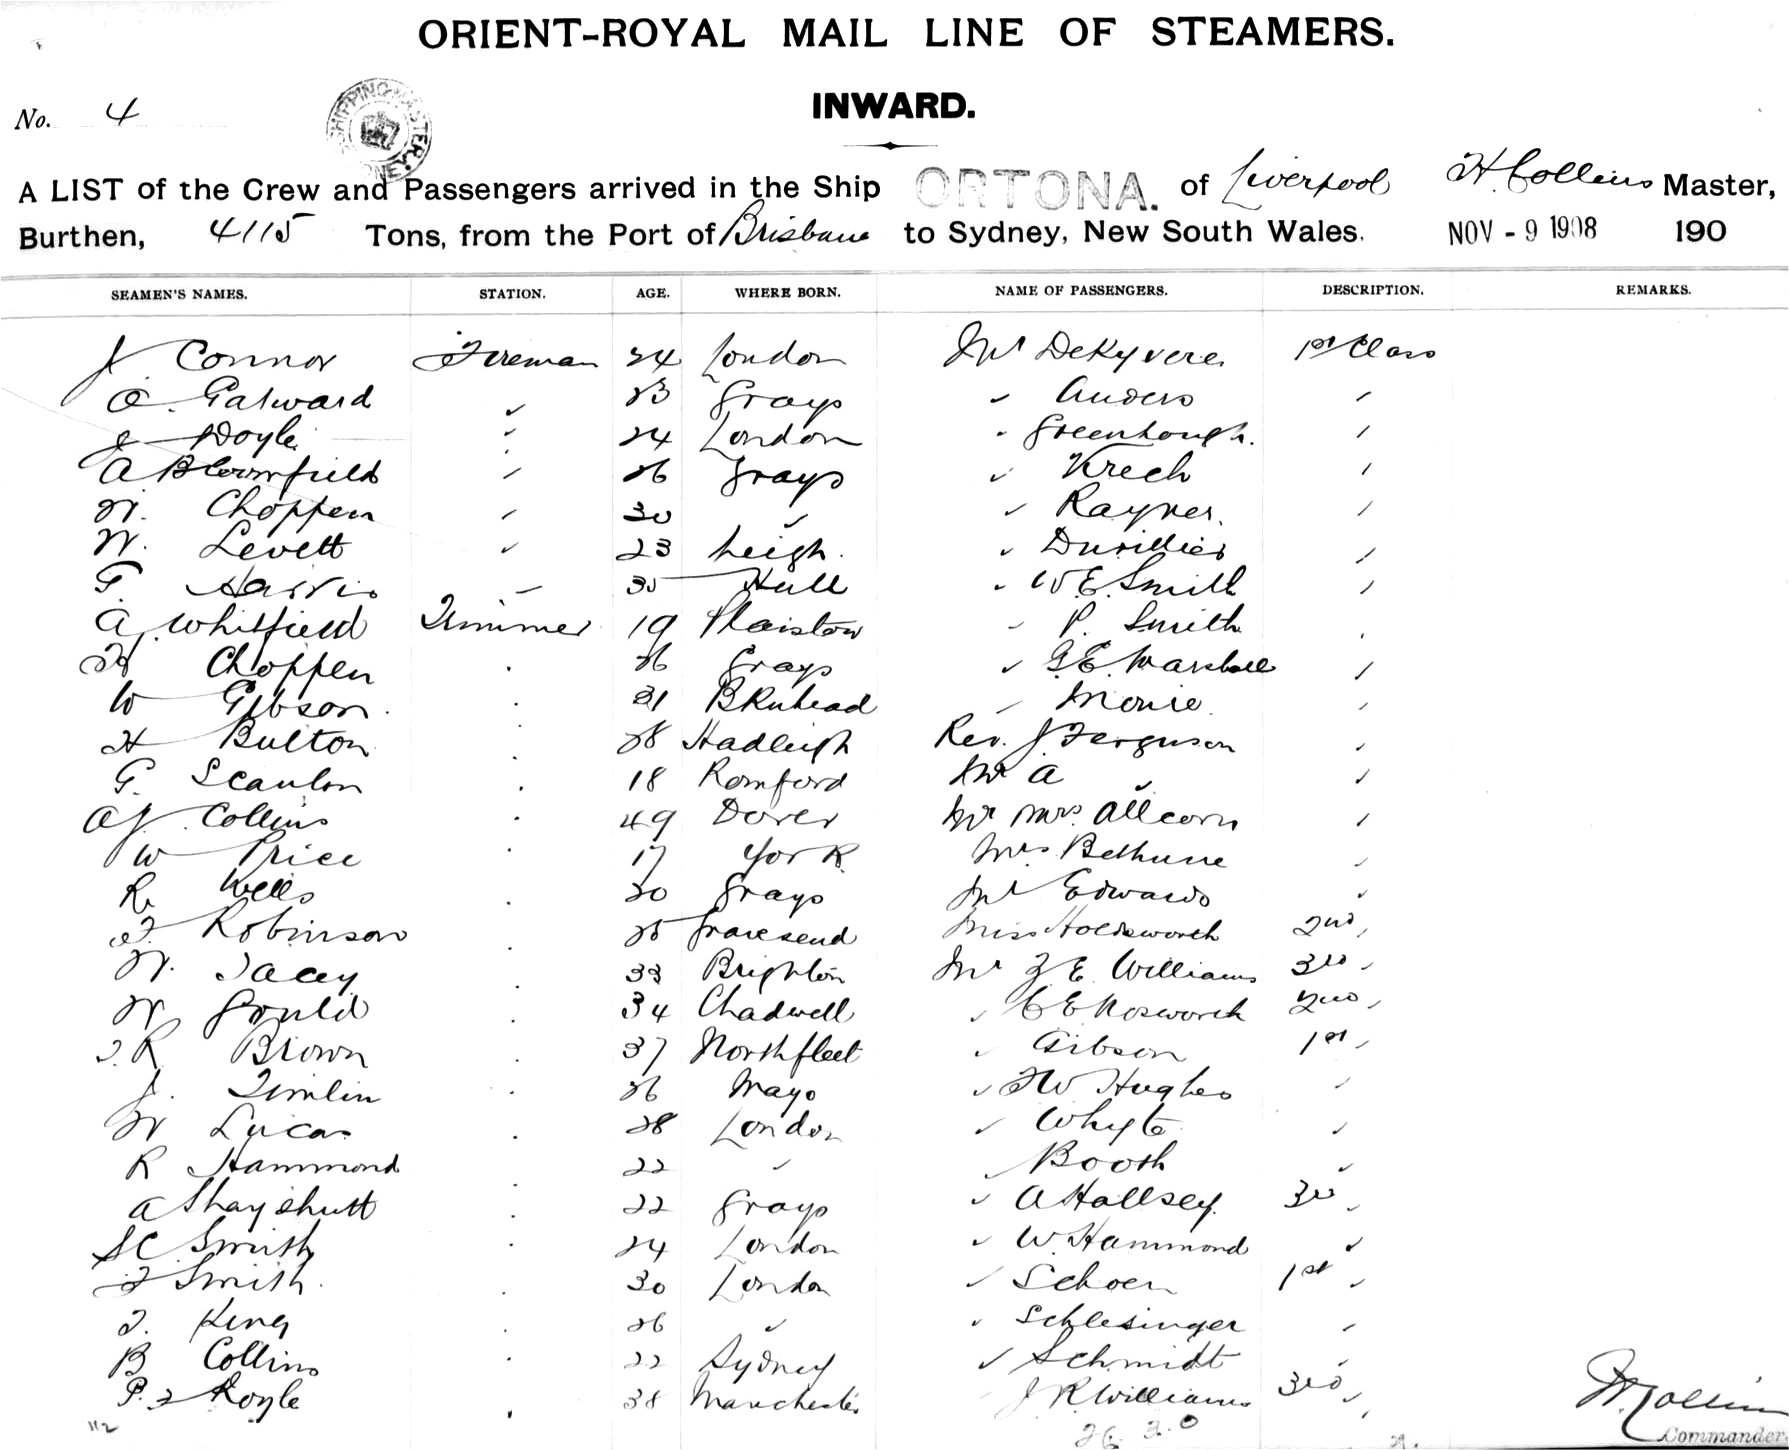 ORIENT-ROYAL MAIL LINE OF STEAMERS.
INWARD.
No. 4
A LIST of the Crew and Passengers arrived in the Ship ORTONA. of Liverpool H. Collins Master,
Burthen, 4115 Tons, from the Port of Brisbane to Sydney, New South Wales. NOV - 9 1908 190
SEAMEN'S NAMES. STATION. AGE. WHERE BORN. NAME OF PASSENGERS. DESCRIPTION. REMARKS.
J Connor Fireman 24 London Mr DeKyvere 1st Class
Gatward 23 Grays " Anders "
J Doyle " 24 London " Greenhough. "
A Bloomfield " 26 Grays " Krech "
W. Choppen " 30 " " Rayner. "
W. Levett " 23 Leigh. "
G. Harris 35 Hull " W E Smith "
A. Whitfield Trimmer 19 Plaistow " P. Smith
H Choppen 26 Grays " G. E. Marshall "
W Gibson 31 BKnhead " Monie "
H Bulton 28 Hadleigh Rev. J. Ferguson "
G. Scanlon 18 Romford Mr A " "
AJ. Collins 49 Dover Mr Mrs. Allcorn "
W Price 17 York Mrs Bethune "
R. Wells 20 Grays Mr Edwards "
F. Robinson 25 Gravesend Miss Holdsworth 2nd "
W. Tacey 33 Brighton Mr Z E Williams 3rd "
W Gould 34 Chadwell " C E Nosworth 2nd "
J. R Brown 37 Northfleet " Gibson 1st "
J. Timlin 26 Mayo " F W Hughes "
W Lucas 28 London " Whyte "
R Hammond 22 " " Booth "
A Shayshutt 22 Grays " A Hallsey. 3rd "
S C Smith 24 London " W. Hammond "
F Smith. 30 London " Schoen 1st "
J. King 26 " " Schlesinger "
B Collins 22 Sydney " Schmidt "
P. J Royle 38 Manchester J R Williams 3rd "
112 26. 3. 0 H. Collins
Commander